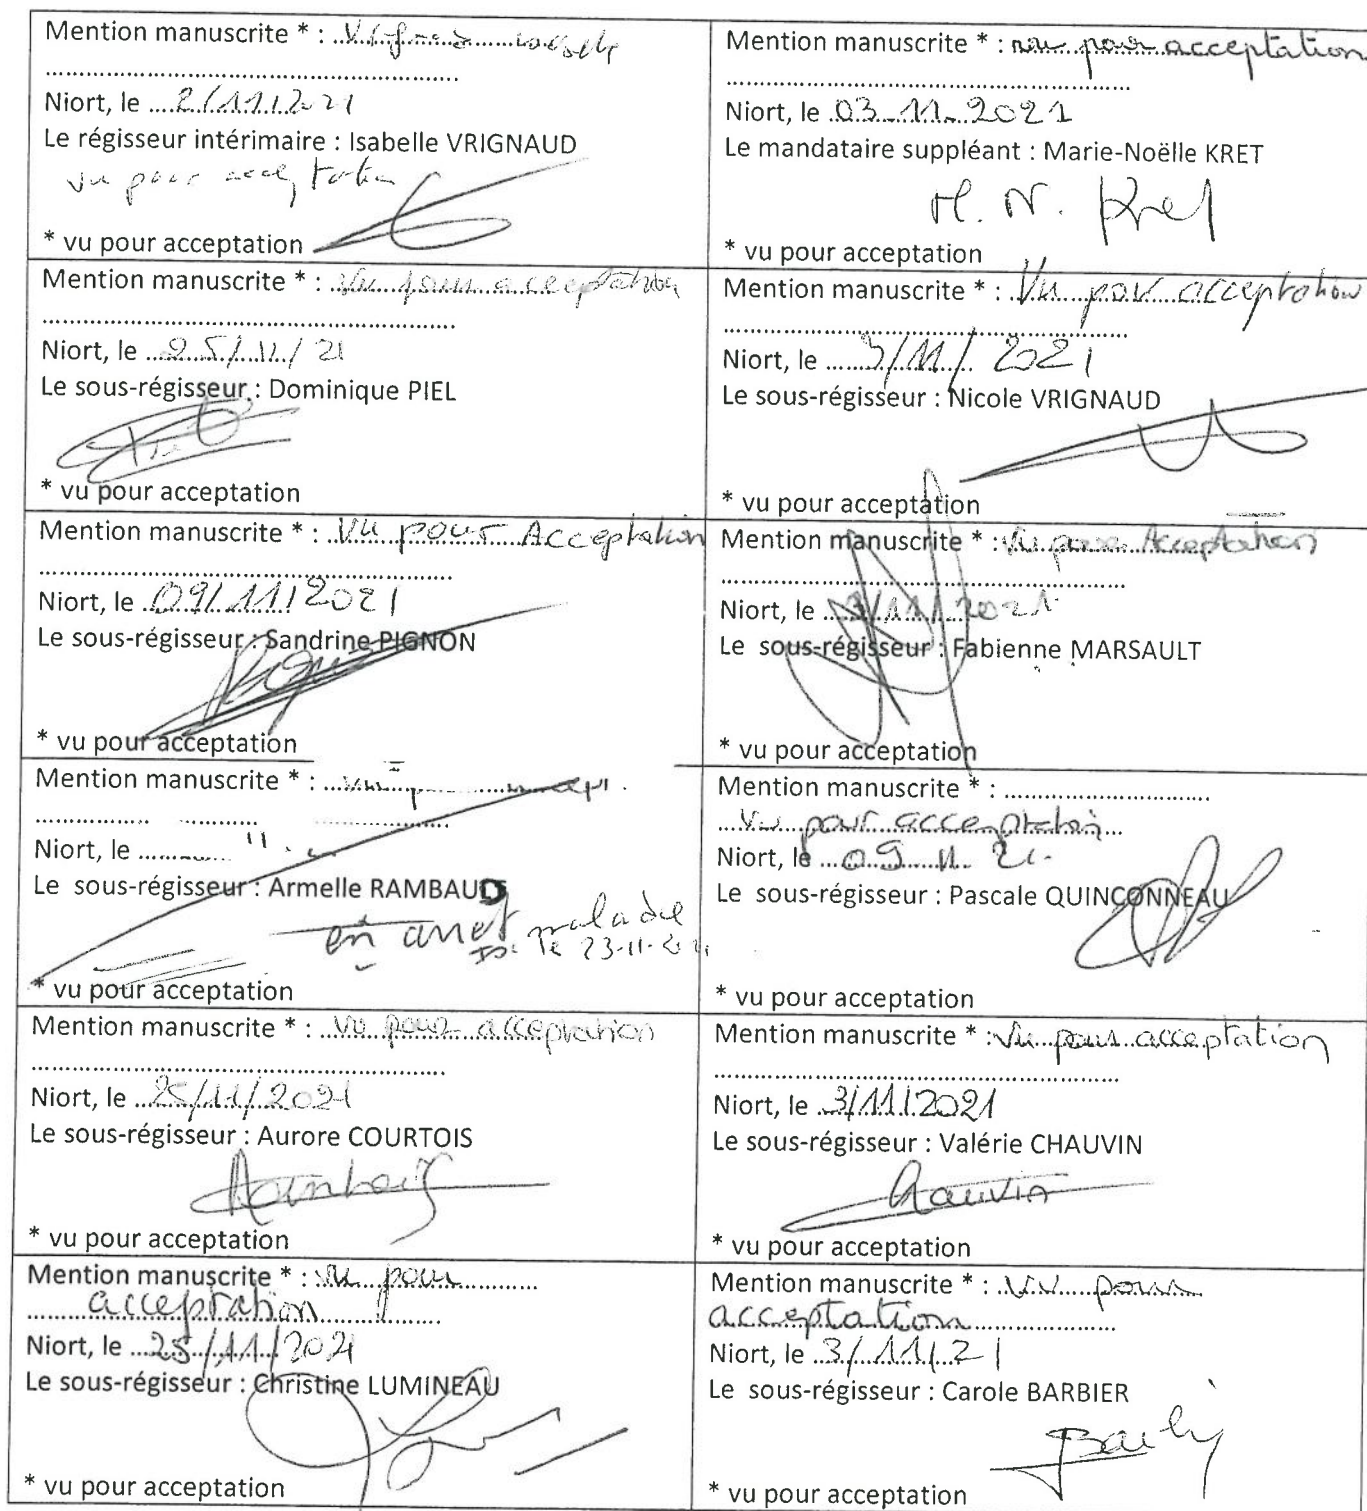 Mention manuscrite * : Vrignaud Isabelle
Niort, le 2/11/2021
Le régisseur intérimaire : Isabelle VRIGNAUD
vu pour acceptation
* vu pour acceptation
Mention manuscrite * : vu pour acceptation
Niort, le 03.11.2021
Le mandataire suppléant : Marie-Noëlle KRET
M. N. Kret
* vu pour acceptation
Mention manuscrite * : Vu pour acceptation
Niort, le 25/11/21
Le sous-régisseur : Dominique PIEL
* vu pour acceptation
Mention manuscrite * : Vu pour acceptation
Niort, le 3/11/2021
Le sous-régisseur : Nicole VRIGNAUD
* vu pour acceptation
Mention manuscrite * : Vu pour Acceptation
Niort, le 09/11/2021
Le sous-régisseur : Sandrine PIGNON
* vu pour acceptation
Mention manuscrite * : Vu pour Acceptation
Niort, le 3/11/2021
Le sous-régisseur : Fabienne MARSAULT
* vu pour acceptation
Mention manuscrite * :
Niort, le
Le sous-régisseur : Armelle RAMBAUD
en arret maladie
le 23-11-2021
* vu pour acceptation
Mention manuscrite * :
Vu pour acceptation
Niort, le 09 11 21.
Le sous-régisseur : Pascale QUINÇONNEAU
* vu pour acceptation
Mention manuscrite * : Vu pour acceptation
Niort, le 25/11/2021
Le sous-régisseur : Aurore COURTOIS
* vu pour acceptation
Mention manuscrite * : Vu pour acceptation
Niort, le 3/11/2021
Le sous-régisseur : Valérie CHAUVIN
Chauvin
* vu pour acceptation
Mention manuscrite * : vu pour
acceptation
Niort, le 25/11/2021
Le sous-régisseur : Christine LUMINEAU
* vu pour acceptation
Mention manuscrite * : Vu pour
acceptation
Niort, le 3/11/21
Le sous-régisseur : Carole BARBIER
* vu pour acceptation